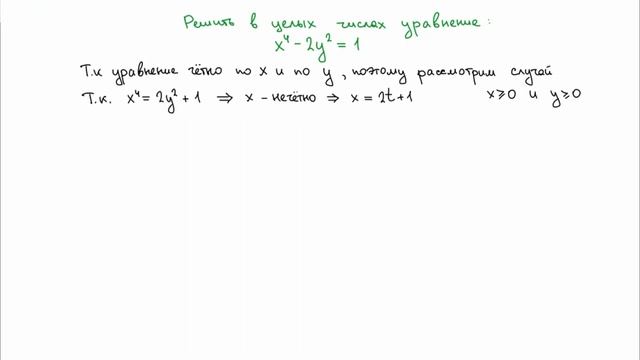 Решить в целых числах уравнение:
x⁴ - 2y² = 1
Т.к уравнение чётно по x и по y, поэтому рассмотрим случай
x ⩾ 0 и y ⩾ 0
Т.к. x⁴ = 2y² + 1 ⇒ x - нечётно ⇒ x = 2t + 1